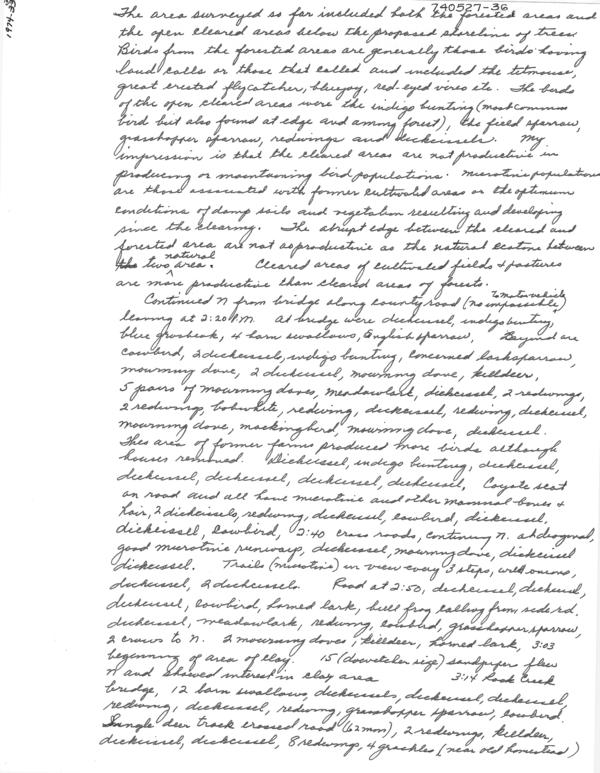 740527-36
1974-33
The area surveyed so far included both the forested areas and
the open cleared areas below the proposed shoreline of trees.
Birds from the forested areas are generally those birds having
loud calls or those that called and included the titmouse,
great crested flycatcher, bluejay, red-eyed vireo etc. The birds
of the open cleared areas were the indigo bunting (most common
bird but also found at edge and among forest), the field sparrow,
grasshopper sparrow, redwings and dickcissels. My
impression is that the cleared areas are not productive in
producing or maintaining bird populations. Microtine populations
are those associated with former cultivated areas or the optimum
conditions of damp soils and vegetation resulting and developing
since the clearing. The abrupt edge between the cleared and
forested area are not as productive as the natural ecotone between
the two natural area. Cleared areas of cultivated fields & pastures
are more productive than cleared areas of forests.
Continued N from bridge along county road (no impossible to motor vehicle)
leaving at 2:20 P.M. At bridge were dickcissel, indigo bunting,
blue grosbeak, 4 barn swallows, English sparrow. Beyond are
cowbird, 2 dickcissels, indigo bunting, concerned lark sparrow,
mourning dove, 2 dickcissel, mourning dove, killdeer,
5 pairs of mourning doves, meadowlark, dickcissel, 2 redwings,
2 redwings, bobwhite, redwing, dickcissel, redwing, dickcissel,
mourning dove, mockingbird, mourning dove, dickcissel.
This area of former farms produced more birds although
houses removed. Dickcissel, indigo bunting, dickcissel,
dickcissel, dickcissel, dickcissel, dickcissel, Coyote scat
on road and all have microtine and other mammal bones &
hair, 2 dickcissels, redwing, dickcissel, cowbird, dickcissel,
dickcissel, cowbird, 2:40 cross roads, continuing N. at diagonal,
good microtine runways, dickcissel, mourning dove, dickcissel
dickcissel. Trails (microtine) in view every 3 steps, well worn,
dickcissel, 2 dickcissels. Road at 2:50, dickcissel, dickcissel,
dickcissel, cowbird, horned lark, bull frog calling from side rd.
dickcissel, meadowlark, redwing, cowbird, grasshopper sparrow,
2 crows to N. 2 mourning doves, killdeer, horned lark, 3:03
beginning of area of clay. 15 (dowitcher size) sandpiper flew
N and showed interest in clay area 3:14 Rock Creek
bridge, 12 barn swallows, dickcissels, dickcissel, dickcissel
redwing, dickcissel, redwing, grasshopper sparrow, cowbird.
Single deer track crossed road (62 mm), 2 redwings, killdeer,
dickcissel, dickcissel, 8 redwings, 4 grackles (near old homestead)